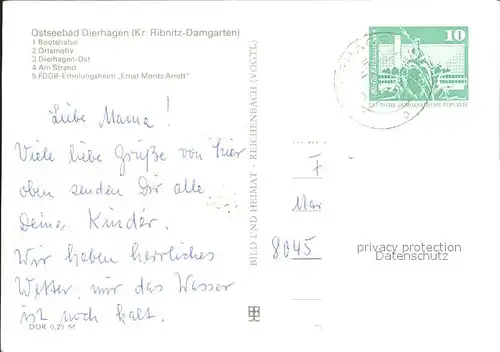 Ostseebad Dierhagen (Kr. Ribnitz-Damgarten)
1 Bootshafen
2 Ortsmotiv
3 Dierhagen-Ost
4 Am Strand
5 FDGB-Erholungsheim „Ernst Moritz Arndt"
Liebe Mama!
Viele liebe Grüße von hier
oben senden Dir alle
Deine Kinder.
Wir haben herrliches
Wetter, nur das Wasser
ist noch kalt.
DDR 0,25 M
BILD UND HEIMAT · REICHENBACH (VOGTL)
10
DEUTSCHE DEMOKRATISCHE REPUBLIK
F
Mar
8045
privacy protection
Datenschutz